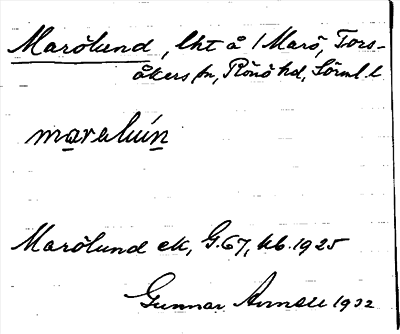 Marölund, lht å /Marö, Tors-
åkers sn, Rönö hd, Sörml. l.
marəlun
Marölund ek, G.67, kb. 1925
Gunnar 1932